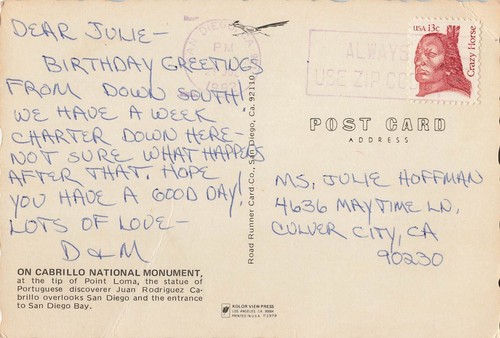 DEAR JULIE-
BIRTHDAY GREETINGS
FROM DOWN SOUTH!
WE HAVE A WEEK
CHARTER DOWN HERE-
NOT SURE WHAT HAPPENS
AFTER THAT. HOPE
YOU HAVE A GOOD DAY!
LOTS OF LOVE-
D & M
ON CABRILLO NATIONAL MONUMENT,
at the tip of Point Loma, the statue of
Portuguese discoverer Juan Rodriguez Ca-
brillo overlooks San Diego and the entrance
to San Diego Bay.
Road Runner Card Co., San Diego, Ca. 92110
SAN DIEGO
PM
ALWAYS
USE ZIP CODE
USA 13c
Crazy Horse
POST CARD
ADDRESS
MS. JULIE HOFFMAN
4636 MAYTIME LN.
CULVER CITY, CA
90230
KOLOR VIEW PRESS
LOS ANGELES, CA.
PRINTED IN U.S.A.